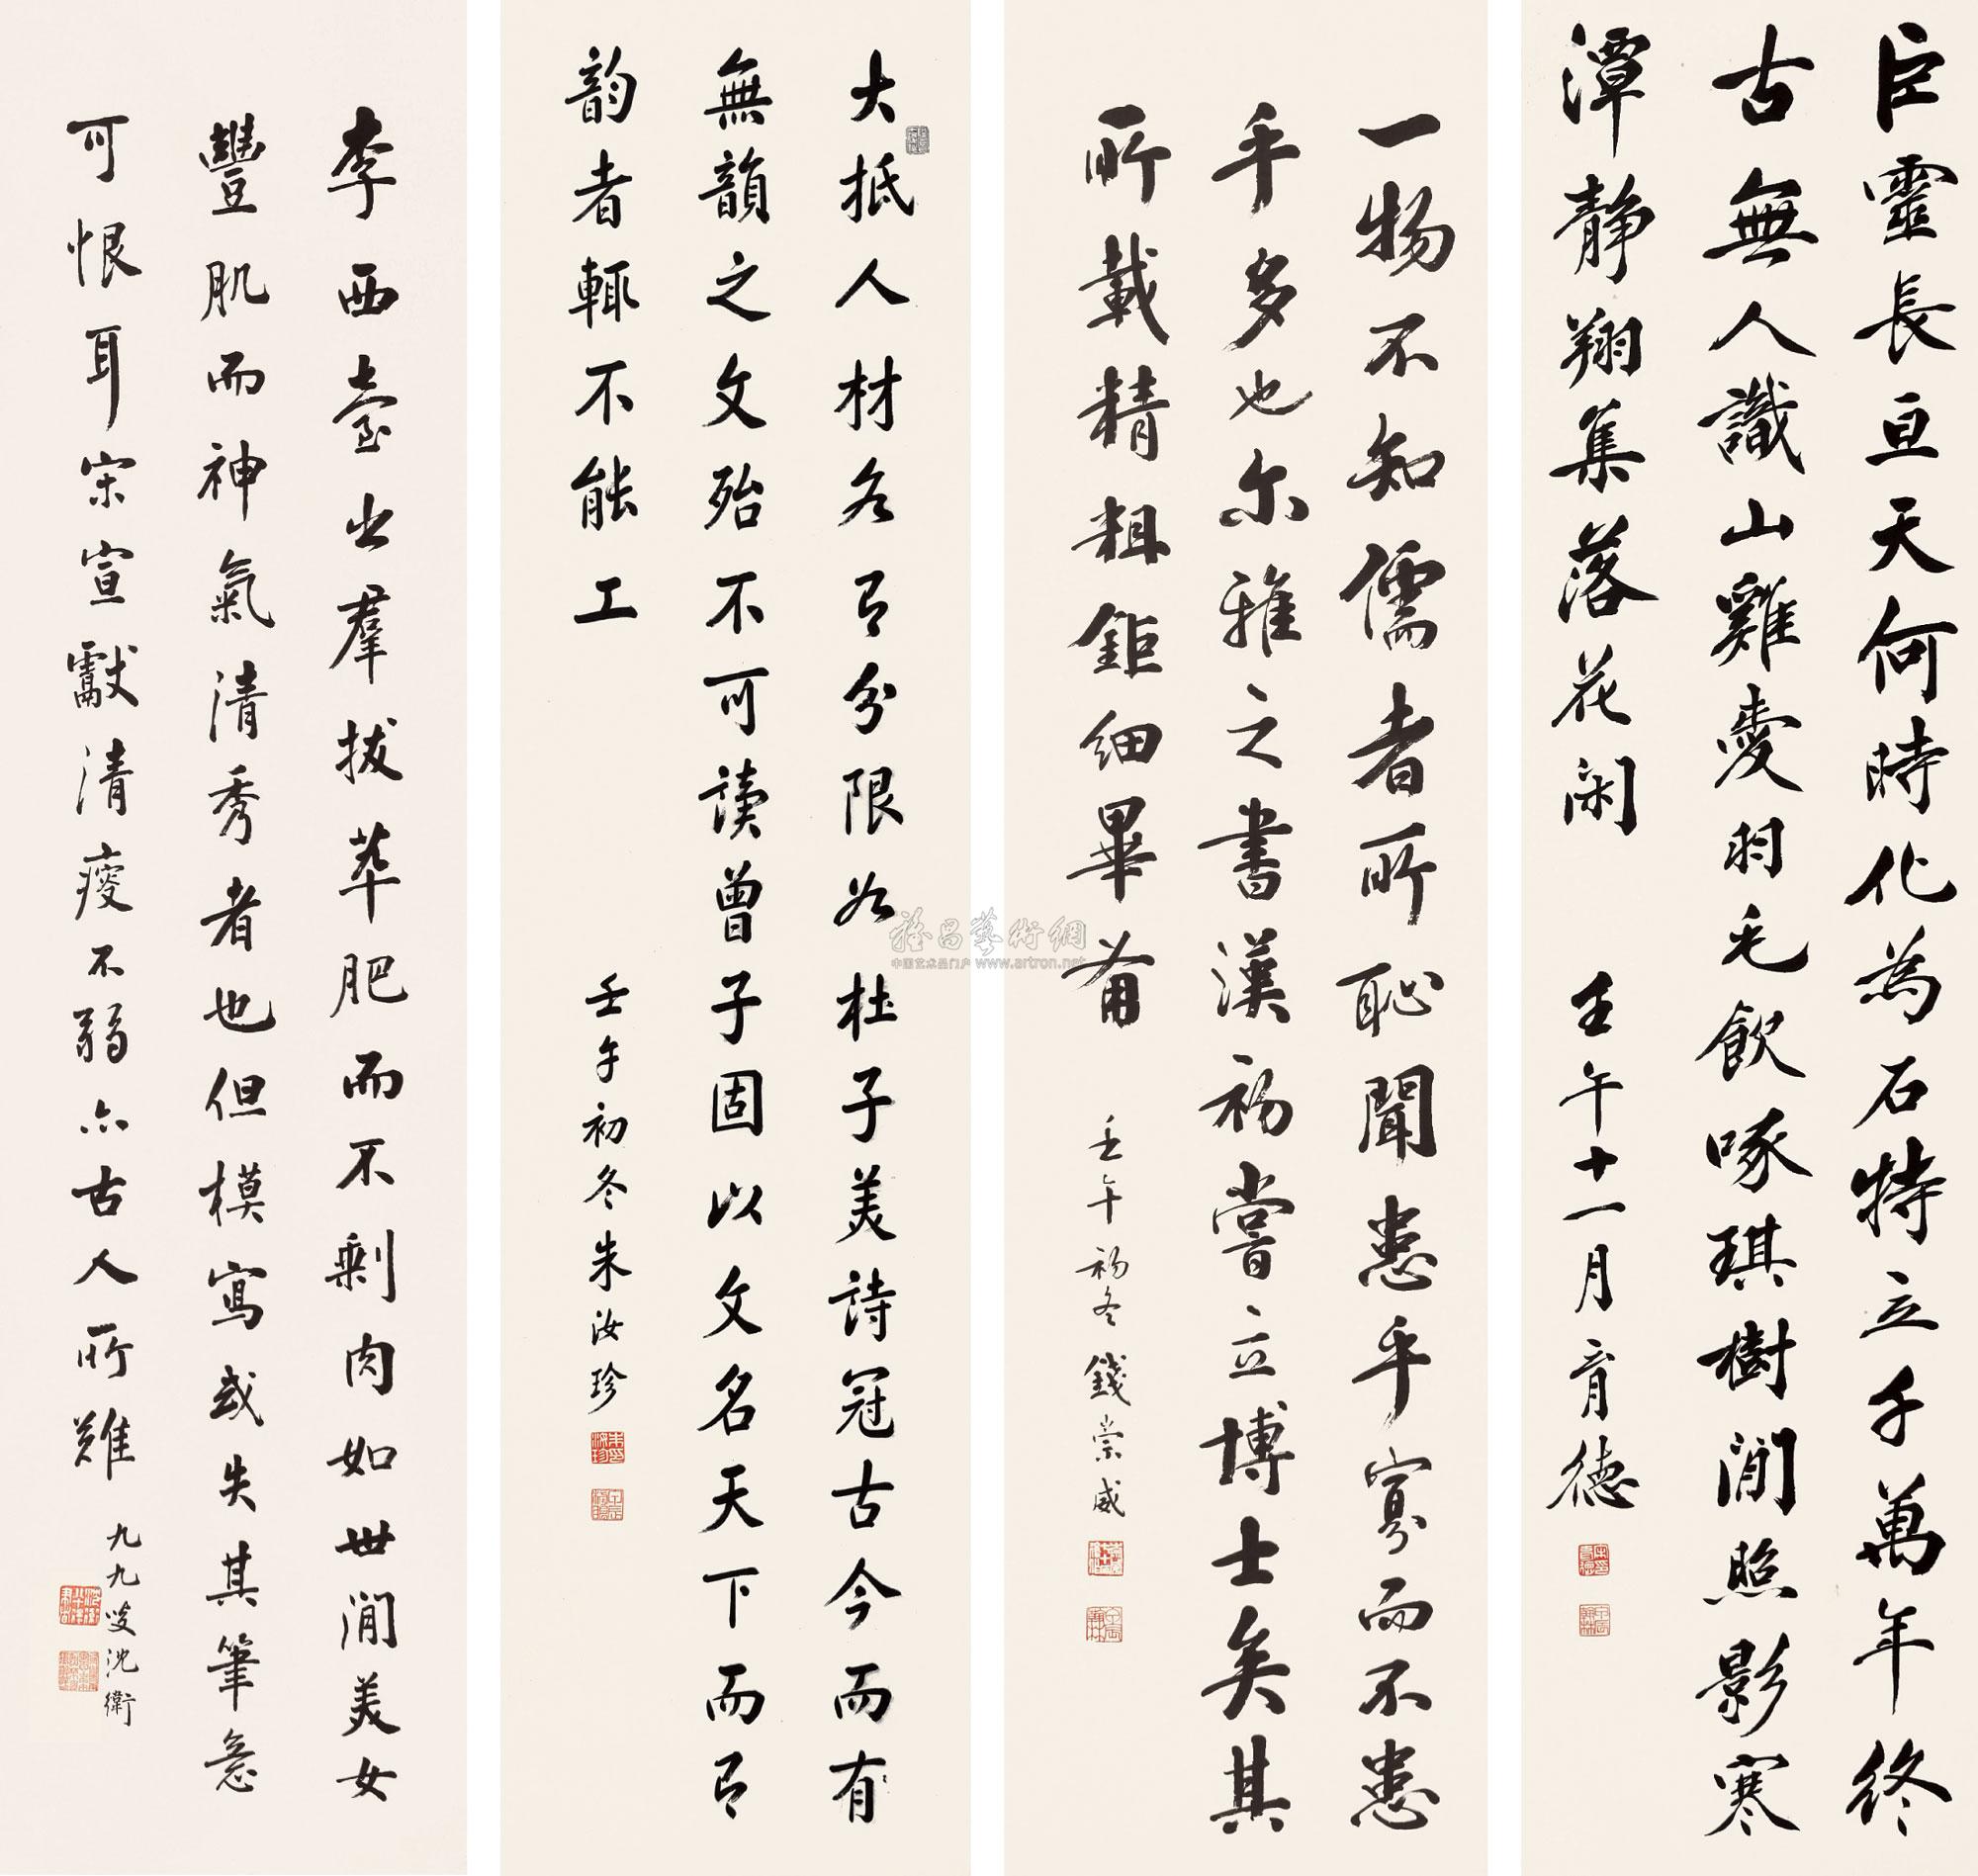 巨靈長亘天何時化為石特立千萬年終
古無人識山雞愛羽毛飲啄琪樹間照影寒
潭靜翔集落花閑
壬午十一月育德
一物不知儒者所恥聞患乎寡而不患
乎多也尔雅之書漢初嘗立博士矣其
所載精粗鉅細畢甫
壬午初冬錢崇威
大抵人材各有分限如杜子美詩冠古今而有
無韻之文殆不可讀曾子固以文名天下而有
韵者輒不能工
壬午初冬朱汝珍
李西臺出羣拔萃肥而不剩肉如世間美女
豐肌而神氣清秀者也但模寫或失其筆意
可恨耳宋宣獻清瘦不弱亦古人所難
九九叟沈衛
雅昌藝術網
中国艺术品门户 www.artron.net